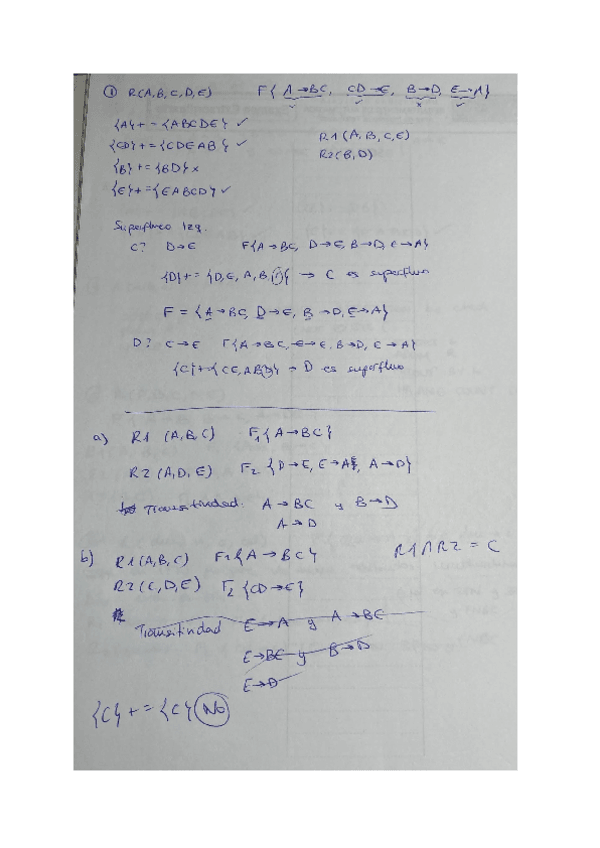 ① R(A,B,C,D,E) F{ A→BC, CD→E, B→D, E→A}
✓ ✓ x ✓
{A}+ = {ABCDE} ✓
{CD}+ = {CDEAB} ✓
R1(A,B,C,E)
{B}+ = {BD} x
R2(B,D)
{E}+ = {EABCD} ✓
Superfluo Izq.
C? D→E F{A→BC, D→E, B→D, E→A}
{D}+ = {D,E,A,B,C} → C es superfluo
F = {A→BC, D→E, B→D, E→A}
D? C→E F{A→BC, C→E, B→D, E→A}
{C}+ {CE,ABD} → D es superfluo
a) R1 (A,B,C) F1{A→BC}
R2 (A,D,E) F2 {D→E, E→A, A→D}
Transitividad. A→BC y B→D
A→D
b) R1(A,B,C) F1{A→BC} R1∩R2 = C
R2(C,D,E) F2 {CD→E}
Transitividad E→A y A→BC
E→BC y B→D
E→D
{C}+ = {C} No